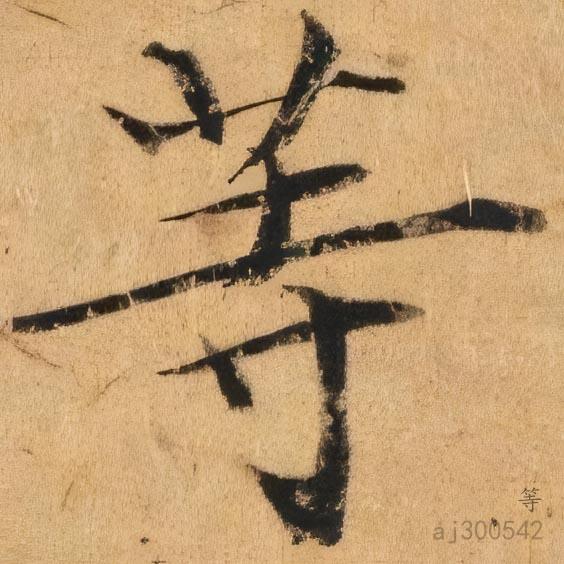 等
等
aj300542